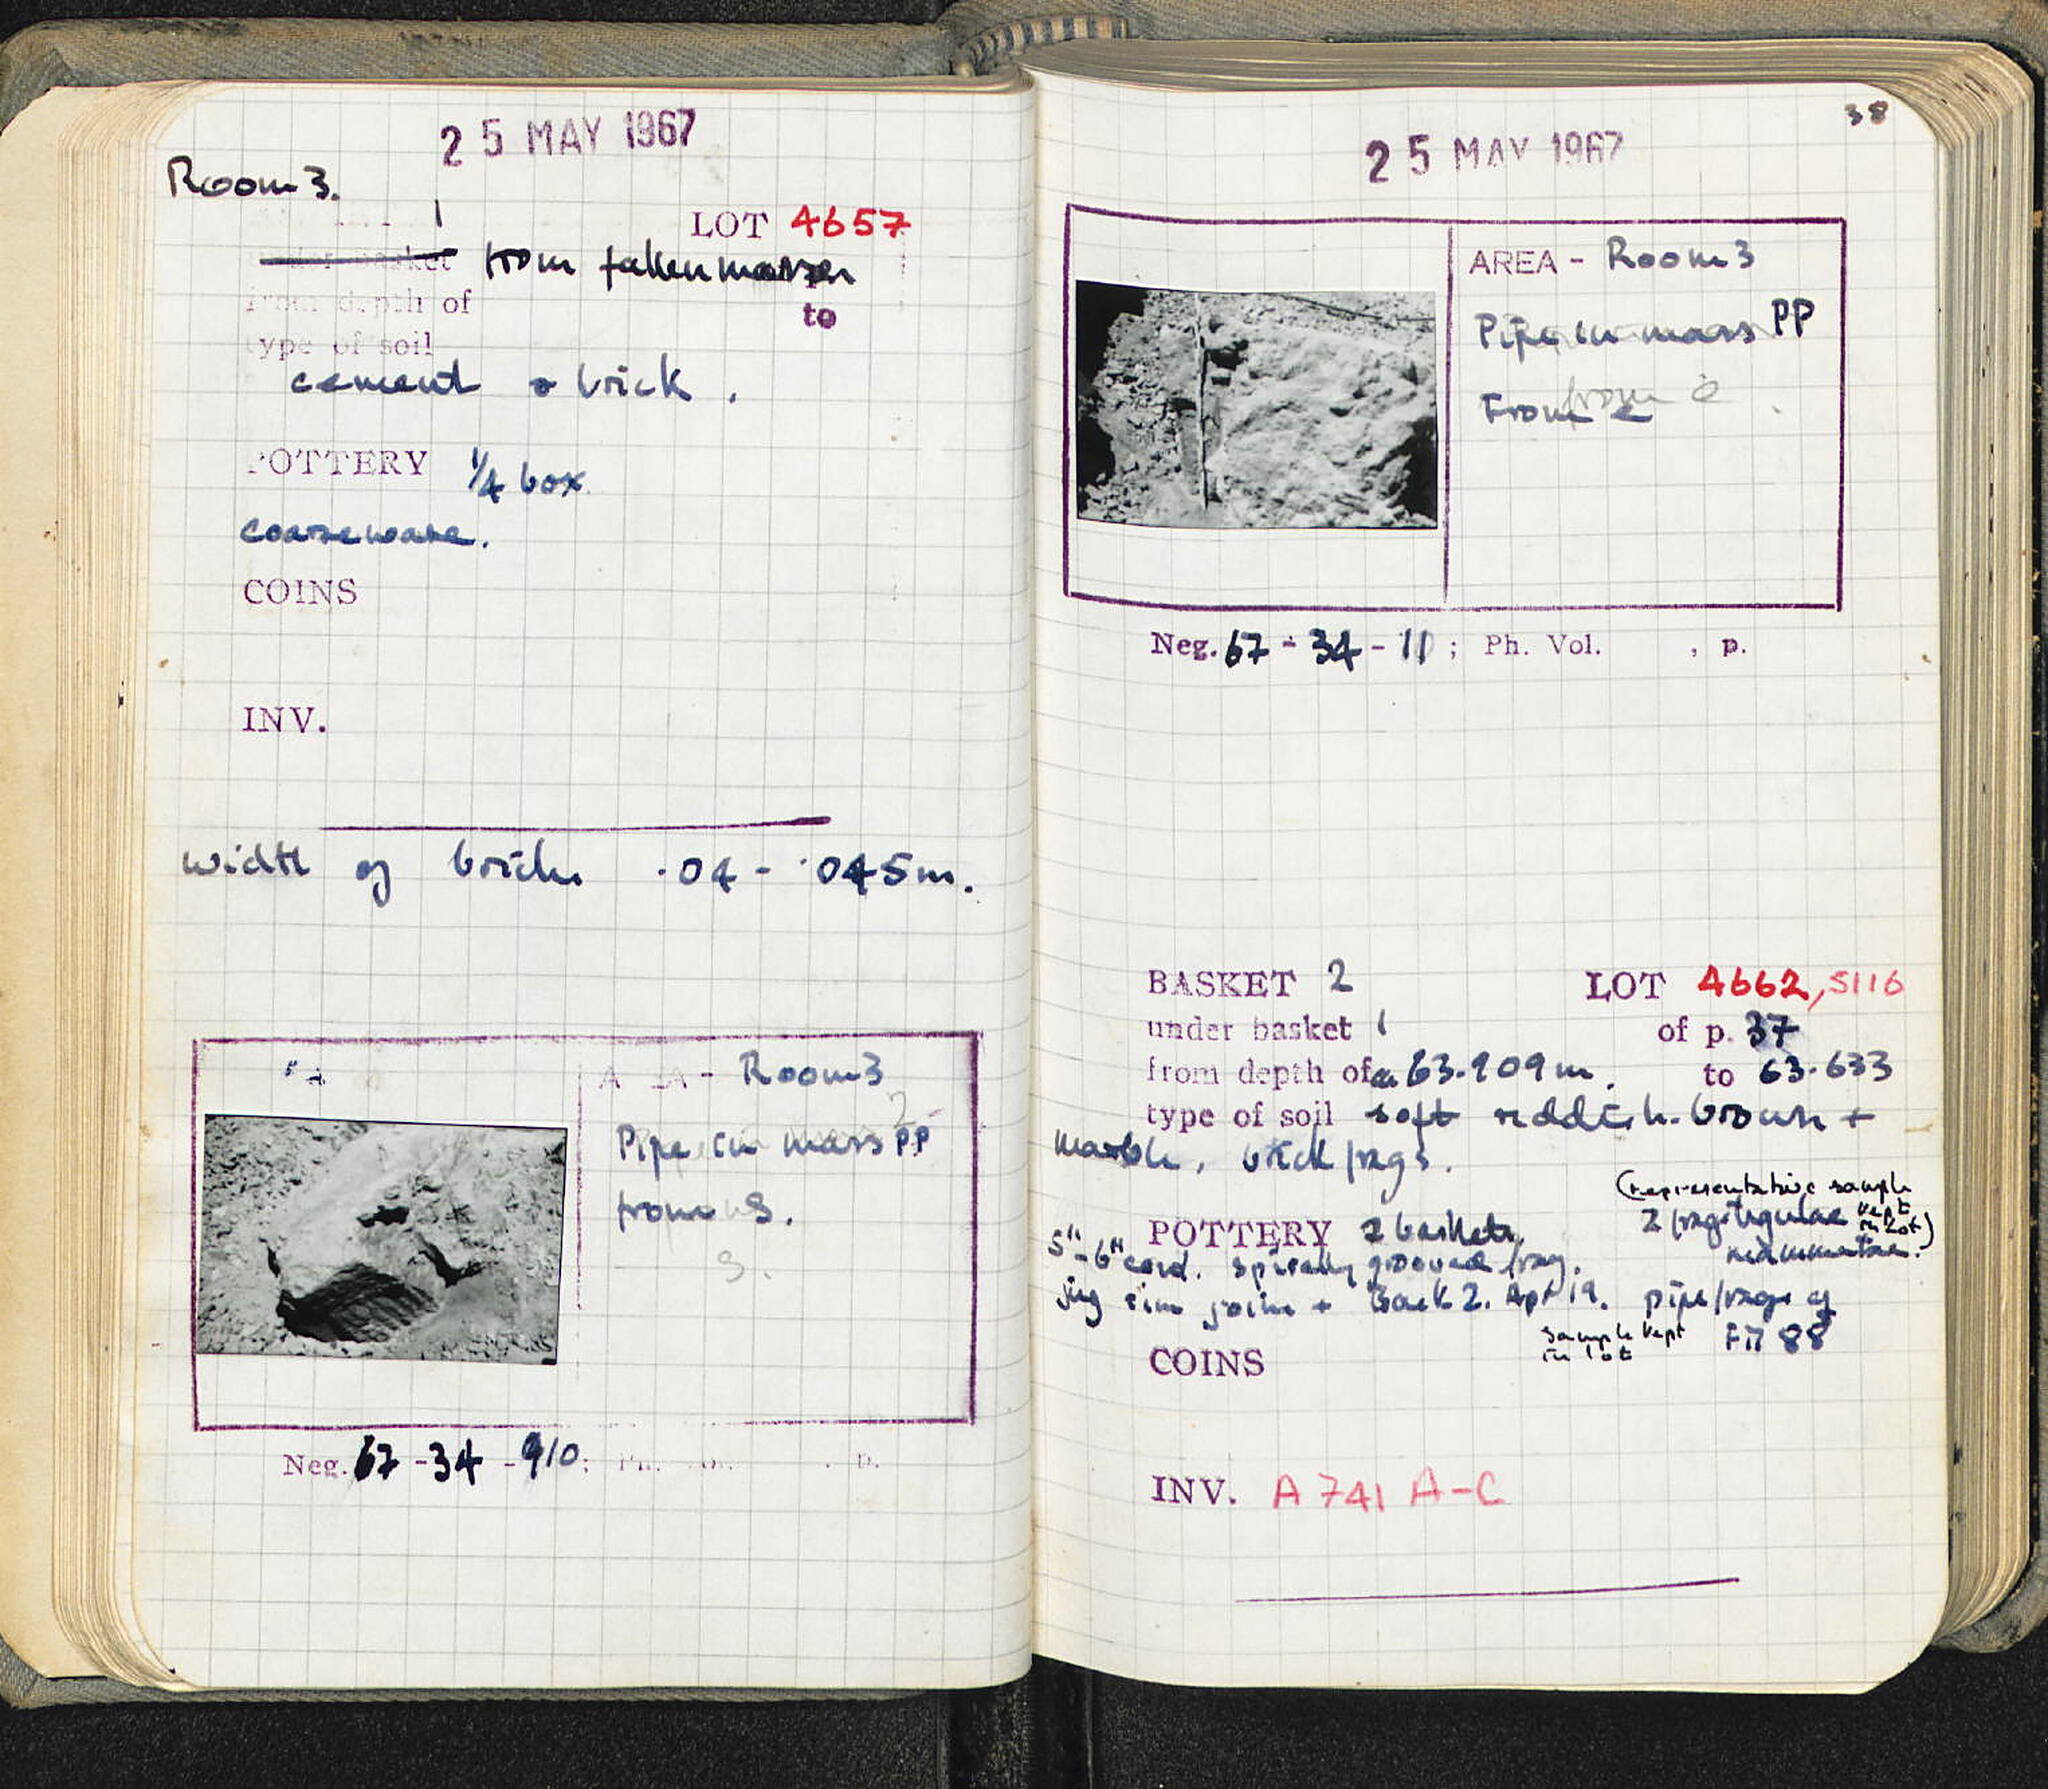 25 MAY 1967
Room 3.
1
LOT 4657
under basket from fallen masses
from depth of to
type of soil
cement & brick.
POTTERY 1/4 box
coarseware.
COINS
INV.
Width of bricks .04 - .045m.
AREA - Room 3
Pipe in mass PP
from S.
S.
Neg. 67 - 34 - 910; Ph. Vol. , p.
38
25 MAY 1967
AREA - Room 3
Pipe in mass PP
From E
Neg. 67 - 34 - 11; Ph. Vol. , p.
BASKET 2 LOT 4662, 5116
under basket 1 of p. 37
from depth of 63.909m. to 63.633
type of soil soft reddish-brown +
marble, brick frags.
(representative sample
kept
in lot)
POTTERY 2 baskets, 2 frags tegulae
mammatae.
5th-6th cent. spirally grooved frag.
jug rim joins + Bask 2. Apr 19. pipe frags of
sample kept
in lot
FM 88
COINS
INV. A 741 A-C